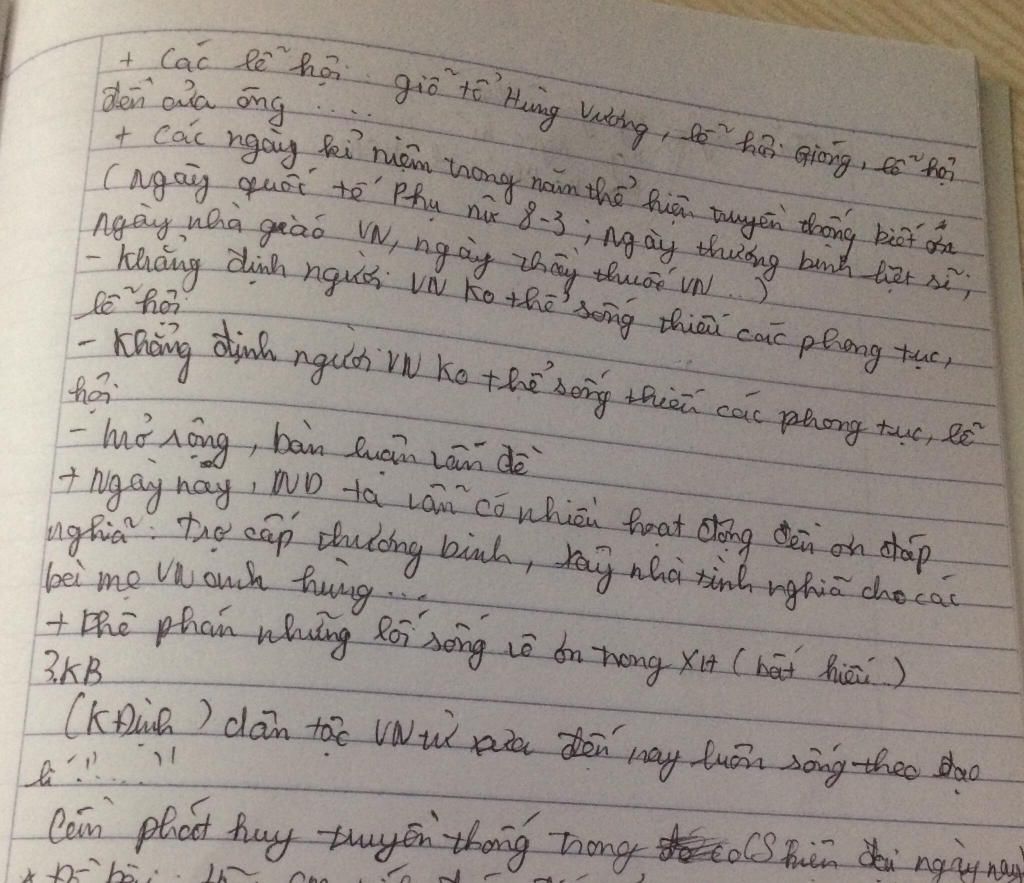 + Các lễ hội: giỗ tổ Hùng Vương, lễ hội Gióng, lễ hội
đền cửa ông ....
+ Các ngày kỉ niệm trong năm thể hiện truyền thống biết ơn
(Ngày quốc tế Phụ nữ 8-3; Ngày thương binh liệt sĩ;
ngày nhà giáo VN, ngày thầy thuốc VN ...)
- Khẳng định người VN Ko thể sống thiếu các phong tục,
lễ hội
- Khẳng định người VN Ko thể sống thiếu các phong tục, lễ
hội
- Mở rộng, bàn luận vấn đề
+ Ngày nay, ND ta vẫn có nhiều hoạt động đền ơn đáp
nghĩa: Trợ cấp thương binh, xây nhà tình nghĩa cho các
bà mẹ VN anh hùng ...
+ Phê phán những lối sống vô ơn trong XH (bất hiếu..)
3.KB
(K Định) dân tộc VN từ xưa đến nay luôn sống theo đạo
lí "....."
Cần phát huy truyền thống trong CS hiện đại ngày nay
* Đề bài: